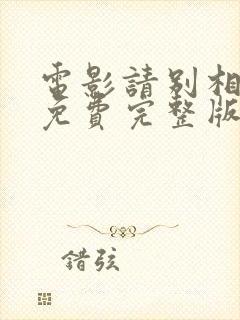 電影請別相
免費完整版
錯弦